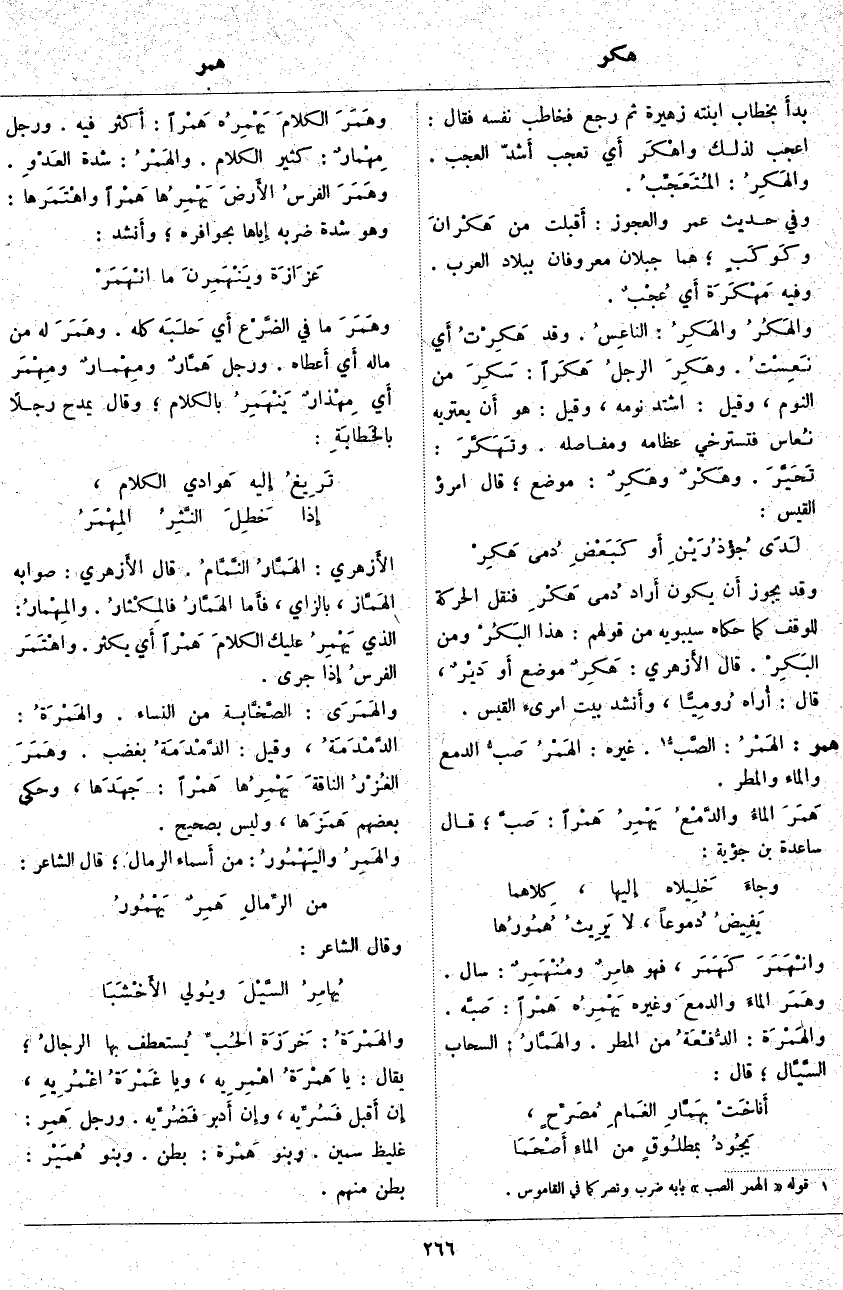 هكر
همر
بدأ بخطاب ابنته زهيرة ثم رجع فخاطب نفسه فقال :
اعجب لذلك واهْكَر أي تعجب أشدّ العجب .
والهَكِرُ : المُتَعَجِّبُ .
وفي حديث عمر والعجوز : أقبلت من هَكْرانَ
وكَوكَبٍ ؛ هما جبلان معروفان ببلاد العرب .
وفيه مَهْكَرَة أي عُجْبٌ .
والهَكُرُ والهَكِرُ : الناعِسُ . وقد هَكِرْتُ أي
نَعِسْتُ . وهَكِرَ الرجلُ هَكَراً : سَكِرَ من
النوم ، وقيل : اشتد نومه ، وقيل : هو أن يعتريه
نُعاس فتسترخي عظامه ومفاصله . وتَهَكَّرَ :
تَحَيَّرَ . وهَكْرٌ وهَكِرٌ : موضع ؛ قال امرؤ
القيس :
لَدَى جُؤذُرَيْنِ أو كَبَعْضِ دُمى هَكِرْ
وقد يجوز أن يكون أراد دُمى هَكْرٍ فنقل الحركة
للوقف كما حكاه سيبويه من قولهم : هذا البَكُرْ ومن
البَكِرْ . قال الأزهري : هَكِرٌ موضع أو دَيْرٌ ،
قال : أُراه رُوميًّا ، وأنشد بيت امرىء القيس .
همر : الهَمْرُ : الصَّبُّ١ . غيره : الهَمْرُ صَبُّ الدمع
والماء والمطر .
هَمَرَ الماءُ والدَّمْعُ يَهْمِرُ هَمْراً : صَبَّ ؛ قال
ساعدة بن جؤية :
وجاءَ خَلِيلاه إليها ، كِلاهما
يَفِيضُ دُموعاً ، لا يَرِيثُ هُمُورُها
وانْهَمَرَ كَهَمَرَ ، فهو هامِرٌ ومُنْهَمِرٌ : سال .
وهَمَر الماءَ والدمعَ وغيره يَهْمِرُه هَمْراً : صَبَّه .
والهَمْرَة : الدُّفْعَةُ من المطر . والهَمَّارُ : السحاب
السَّيَّال ؛ قال :
أناخَتْ بِهَمَّارِ الغَمامِ مُصَرِّحٍ ،
يَجُودُ بمطلُوقٍ من الماءِ أَصْحَمَا
١ قوله « الهمر الصب » بابه ضرب ونصر كما في القاموس .
وهَمَرَ الكلامَ يَهْمِرُه هَمْراً : أكثر فيه . ورجل
مِهْمارٌ : كثير الكلام . والهَمْرُ : شدة العَدْوِ .
وهَمَرَ الفرسُ الأَرضَ يَهْمِرُها هَمْراً واهْتَمَرها :
وهو شدة ضربه إياها بحوافره ؛ وأنشد :
عَزازَة ويَنْهَمِرنَ ما انْهَمَرْ
وهَمَرَ ما في الضَّرْعِ أي حَلَبَه كله . وهَمَرَ له من
ماله أي أعطاه . ورجل هَمَّارٌ ومِهْمارٌ ومِهْمَر
أي مِهْذارٌ يَنْهَمِرُ بالكلام ؛ وقال يمدح رجلًا
بالخَطابَةِ :
تَرِيغُ إليه هَوادي الكلام ،
إذا خَطِلَ النَّثِرُ المِهْمَرُ
الأَزهري : الهَمَّارُ النَّمَّامُ . قال الأَزهري : صوابه
الهَمَّاز ، بالزاي ، فأما الهَمَّارُ فالمِكْثارُ . والمِهْمارُ :
الذي يَهْمِرُ عليك الكلامَ هَمْراً أي يكثر . واهْتَمَر
الفرسُ إذا جرى .
والهَمَرَى : الصَّخَّابة من النساء . والهَمْرَةُ :
الدَّمْدَمَةُ ، وقيل : الدَّمْدَمَةُ بغضب . وهَمَرَ
الغُزْرُ الناقةَ يَهْمِرُها هَمْراً : جَهَدَها ، وحكى
بعضهم هَمَزَها ، وليس بصحيح .
والهَمِرُ واليَهْمُورُ : من أسماء الرمال ؛ قال الشاعر :
من الرِّمالِ هَمِرٌ يَهْمُورُ
وقال الشاعر :
يُهامِرُ السَّيْلَ ويُولي الأَخْشَبَا
والهَمْرَةُ : خَرَزَة الحُبِّ يُستعطف بها الرجالُ ؛
يقال : يا هَمْرَةُ اهْمِرِيه ، ويا غَمْرَةُ اغْمُرِيهِ ،
إن أقبل فَسُرِّيه ، وإن أدبر فَضُرِّيه . ورجل هَمِر :
غليظ سمين . وبنو هَمْرة : بطن . وبنو هُمَيْر :
بطن منهم .
٢٦٦